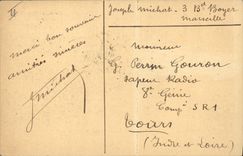 Joseph Michat - 3 Bd Boyer
Marseille
merci bon souvenir
amitiés sincères
J Michat
Monsieur
Perrin Gouron
Sapeur Radio
8e Génie
Compie S R 1
Tours
(Indre et Loire)